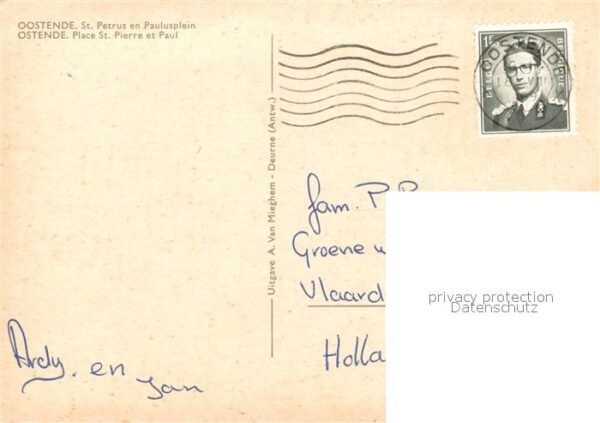 OOSTENDE. St. Petrus en Paulusplein
OSTENDE. Place St. Pierre et Paul
OOSTENDE
BELGIE
BELGIQUE
Uitgave A. Van Mieghem - Deurne (Antw.)
fam. P.
Groene
Vlaard
Holla
Ardy. en
Jan
privacy protection
Datenschutz